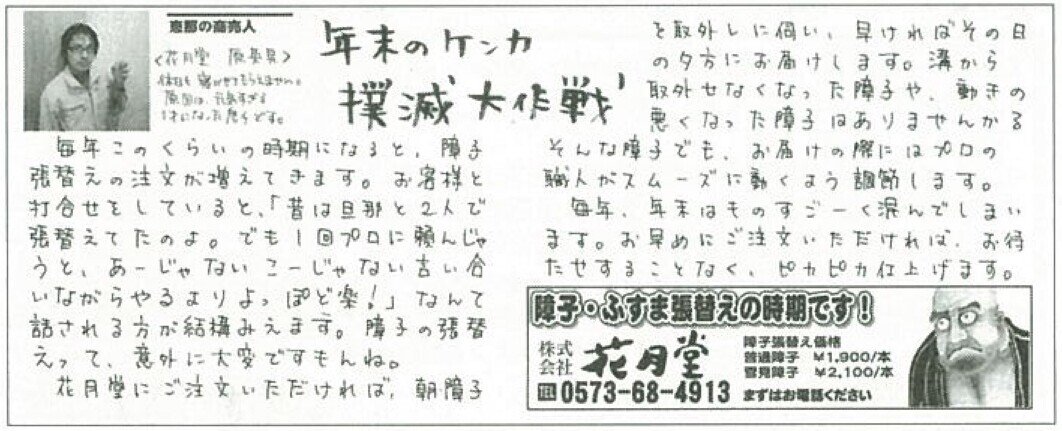 恵那の商売人
<花月堂 原
年末のケンカ
撲滅大作戦
毎年このくらいの時期になると、障子
張替えの注文が増えてきます。お客様と
打合せをしていると、「昔は旦那と2人で
張替えてたのよ。でも1回プロに頼んじゃ
うと、あーじゃないこーじゃない言い合
いながらやるよりよっぽど楽!」なんて
話される方が結構みえます。障子の張替
えって、意外に大変ですもんね。
花月堂にご注文いただければ、朝障子
を取外しに伺い、早ければその日
の夕方にお届けします。溝から
取外せなくなった障子や、動きの
悪くなった障子はありませんか?
そんな障子でも、お届けの際にはプロの
職人がスムーズに動くよう調節します。
毎年、年末はものすごーく混んでしまい
ます。お早めにご注文いただければ、お待
たせすることなく、ピカピカ仕上げます。
障子・ふすま張替えの時期です!
株式会社 花月堂
障子張替え価格
普通障子 ¥1,900/本
雪見障子 ¥2,100/本
0573-68-4913 まずはお電話ください